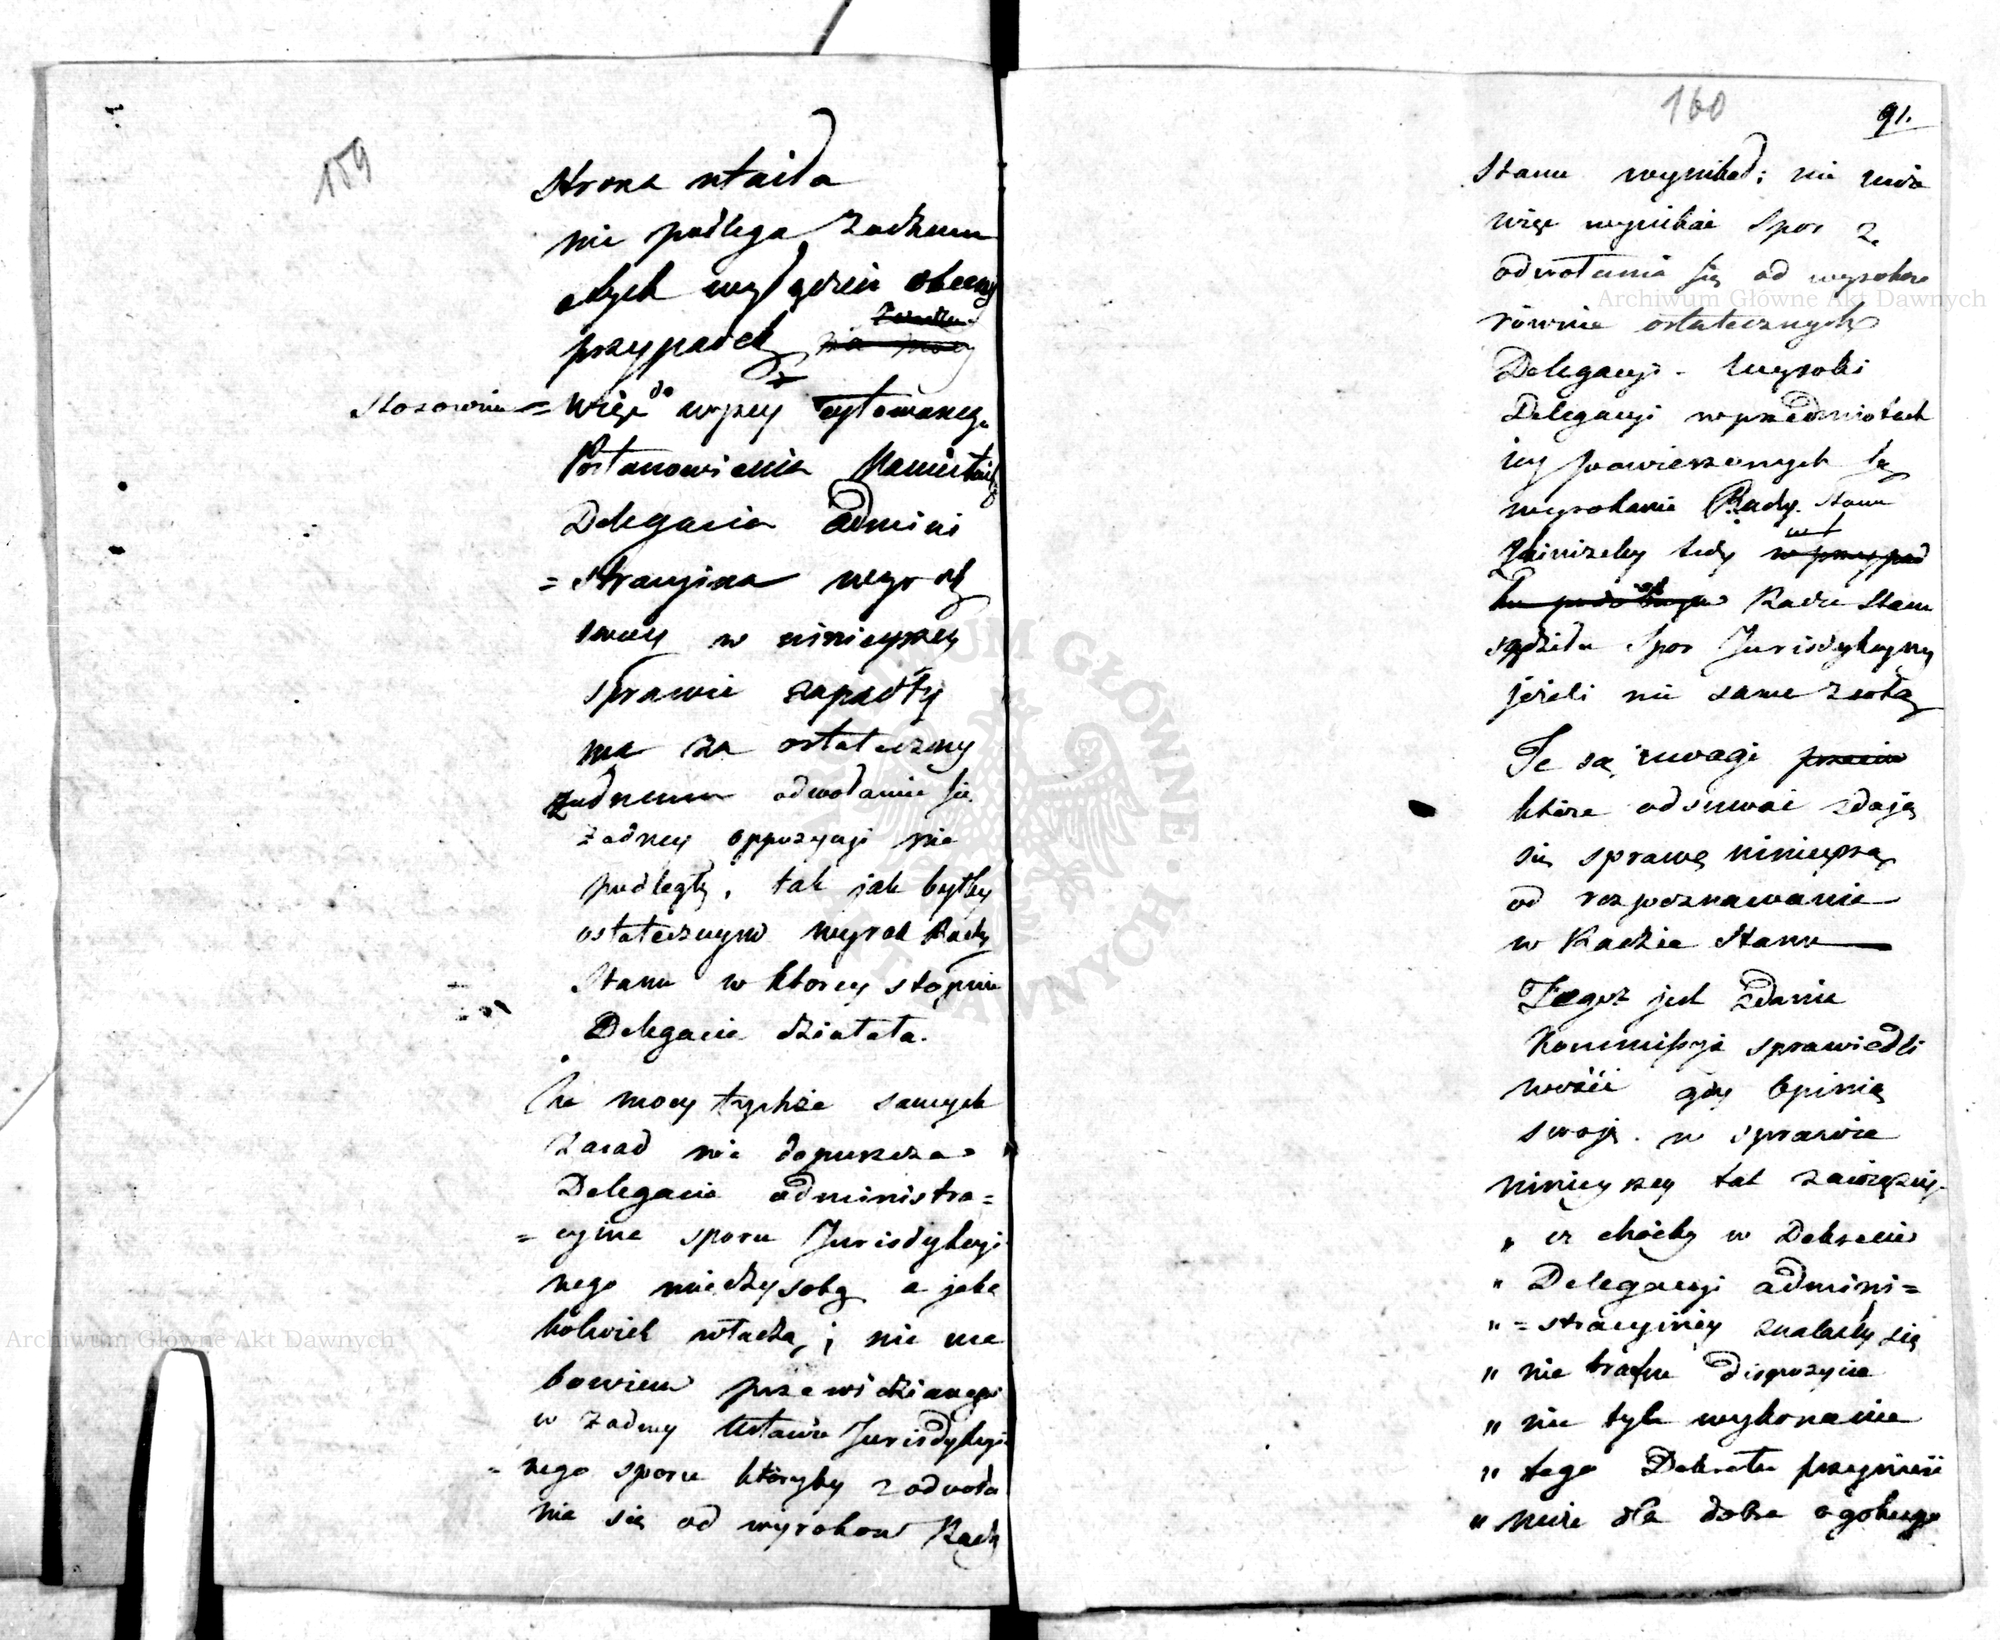 159
strona utaiła
nie podlega żadnemu
tych względów obecny
przypadek
Stosownie = więc do wyżey cytowanego
Postanowienia Namiestnika
Delegacia admini
= stracyina wyrok
swoy w ninieyszey
sprawie zapadły
ma za ostateczny
żadnemu odwołaniu się
żadney oppozycyi nie
podległy, tak jak byłby
ostatecznym wyrok Rady
Stanu w ktorey stopniu
Delegacia działała.
Na mocy tychże samych
zasad nie dopuszcza
Delegacia administra=
= cyina sporu Jurisdykcyi
nego między sobą a jaką
kolwiek władzą; nie ma
bowiem przewidzianego
w żadney Ustawie Jurisdykcyi
= nego sporu któryby z odwoła
nia się od wyrokow Rady
160
91.
Stanu wynikał; nie może
więc wynikać Spor z
odwołania się od wyrokow
równie ostatecznych
Delegacyi. Wyroki
Delegacyi w przedmiotach
iey powierzonych są
wyrokami Rady Stanu
tedy w przypad
ku Radzie Stanu
Spor Jurisdykcyiny
jeżeli nie same z sobą
Te są uwagi przeciw
które odsuwać zdają
się sprawę ninieyszą
od rozpoznawania
w Radzie Stanu
Tegoż jest zdania
Kommissyia sprawiedli
wości gdy Opinią
swoją w sprawie
ninieyszey tak
" iż choćby w Dekrecie
" Delegacyi admini=
" = stracyiney znalazły się
" nie trafne dispozycie
" nie tyle wykonanie
" tego Dekretu przynieść
" może dla dobra ogolnego
Archiwum Główne Akt Dawnych
Archiwum Główne Akt Dawnych
ARCHIWUM GŁÓWNE · AKT DAWNYCH ·